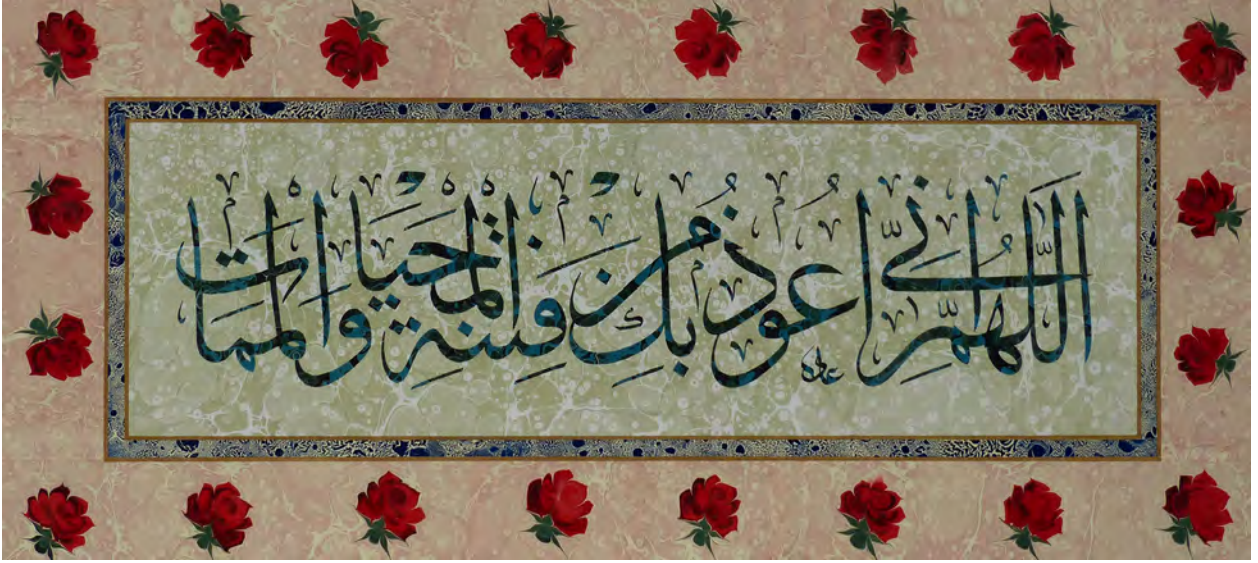 اللهم انى اعوذ بك من فتنة المحيا والممات